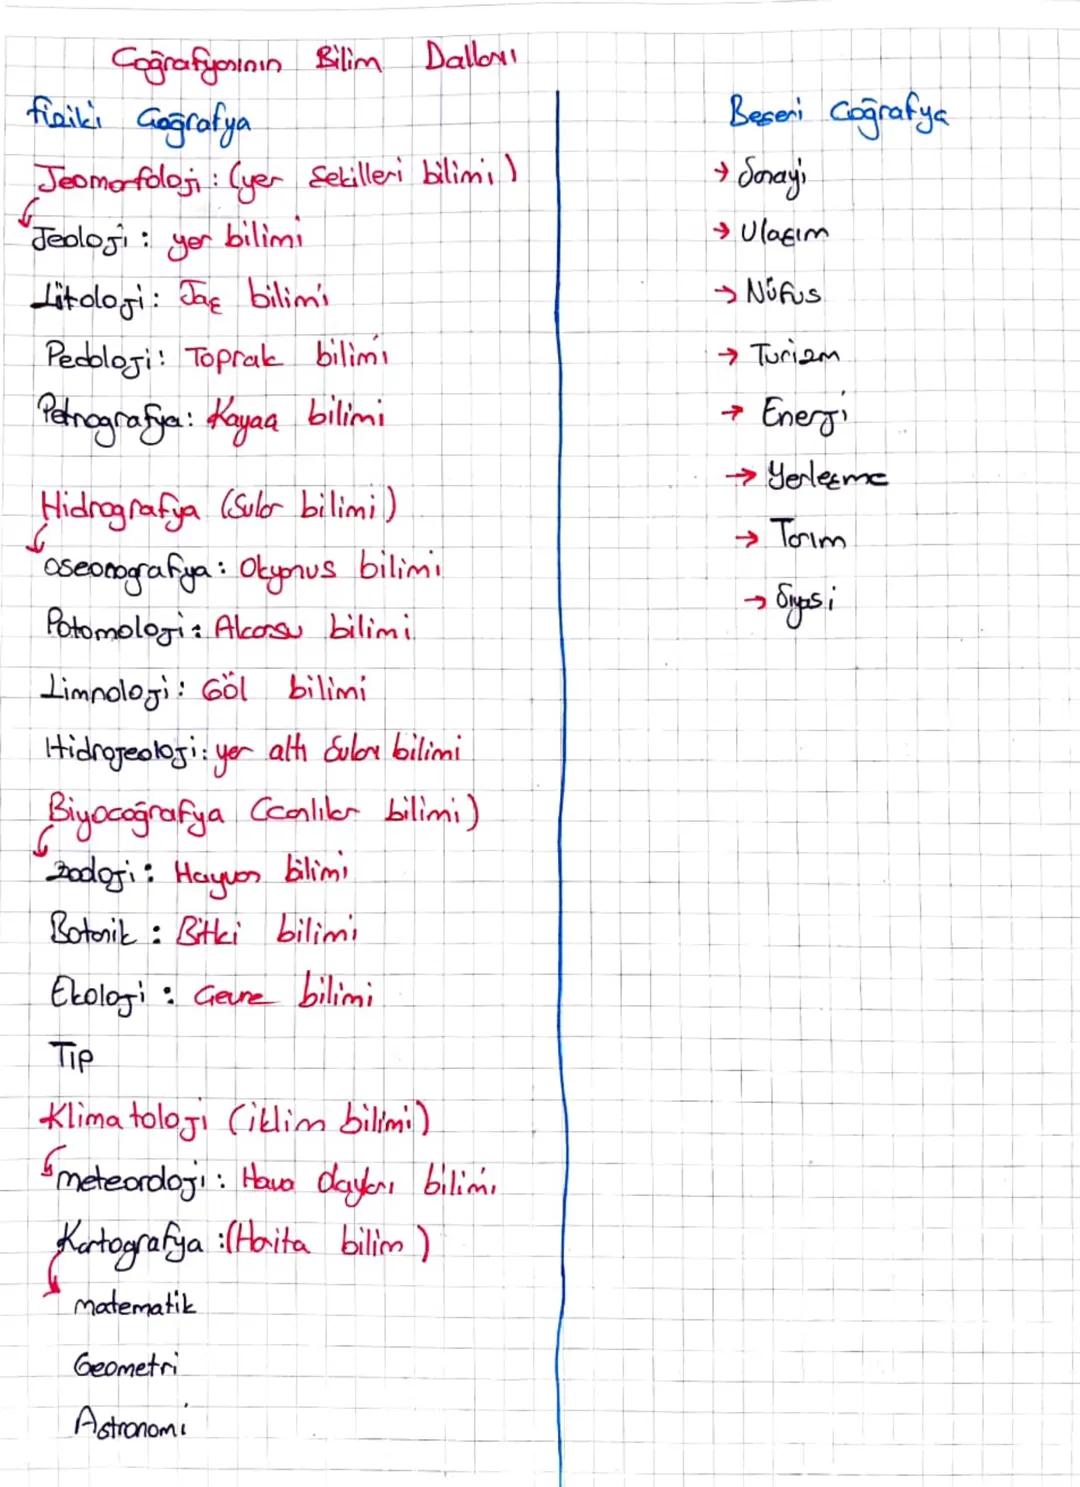 Coğrafyanın Bilim Dalları
fiziki Coğrafya
Jeomorfoloji : (yer Şekilleri bilimi)
Jeoloji : yer bilimi
Litoloji : Taş bilimi
Pedoloji : Toprak bilimi
Petrografya : Kayaç bilimi
Hidrografya (Sular bilimi)
oseonografya : Okyanus bilimi
Potomoloji : Akarsu bilimi
Limnoloji : Göl bilimi
Hidrojeoloji : yer altı Suları bilimi
Biyocoğrafya (Canlılar bilimi)
zooloji : Hayvan bilimi
Botanik : Bitki bilimi
Ekoloji : Çevre bilimi
Tıp
Klimatoloji (iklim bilimi)
meteoroloji : Hava olayları bilimi
Kartografya : (Harita bilim)
matematik
Geometri
Astronomi
Beşeri Coğrafya
→ Sanayi
→ Ulaşım
→ Nüfus
→ Turizm
→ Enerji
→ Yerleşme
→ Tarım
→ Siyasi